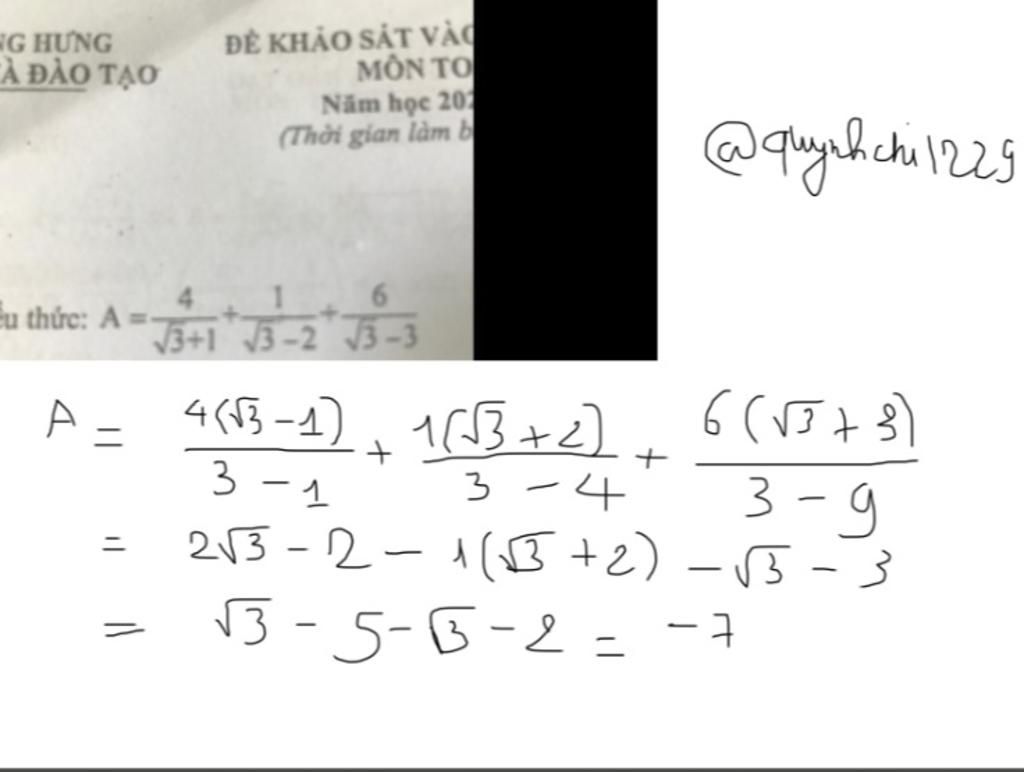 NG HƯNG
À ĐÀO TẠO
ĐỀ KHẢO SÁT VÀO
MÔN TO
Năm học 202
(Thời gian làm b
ểu thức: A = 4/(√3+1) + 1/(√3-2) + 6/(√3-3)
@quynhchi1229
A = 4(√3 - 1)/(3 - 1) + 1(√3 + 2)/(3 - 4) + 6(√3 + 3)/(3 - 9)
= 2√3 - 2 - 1(√3 + 2) - √3 - 3
= √3 - 5 - √3 - 2 = -7